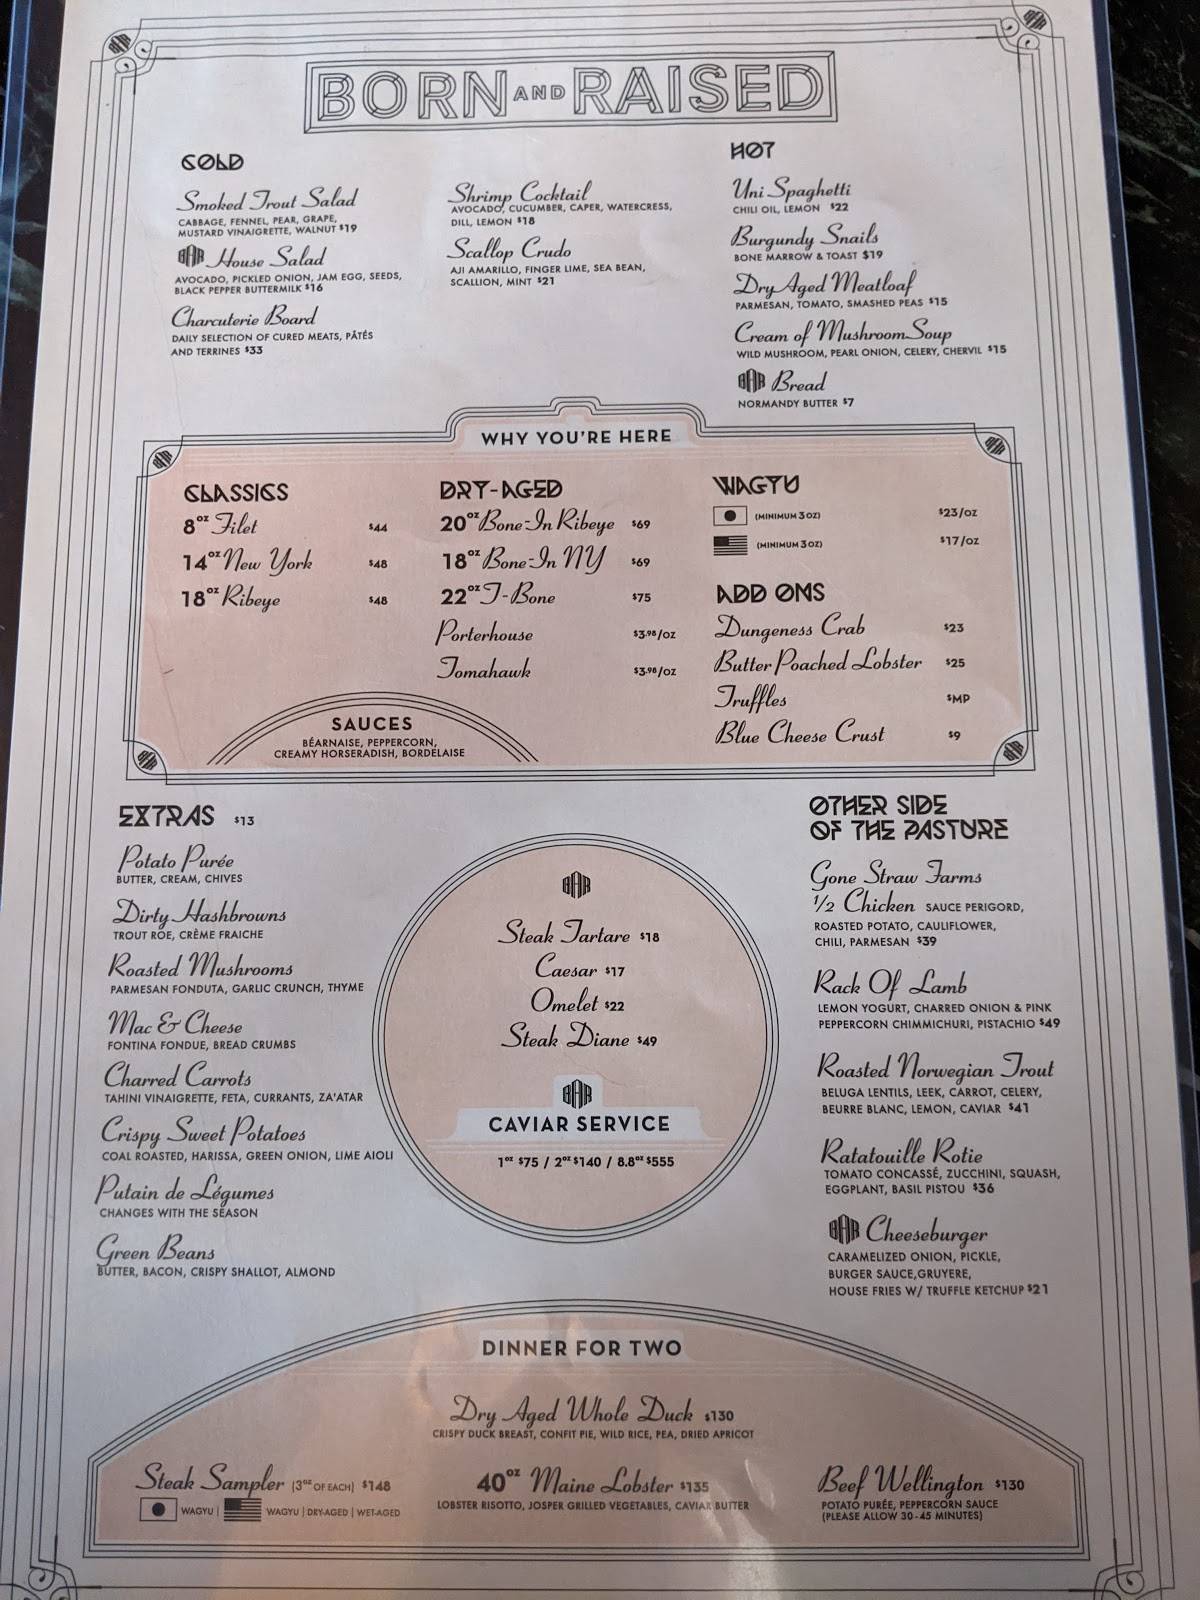 BORN AND RAISED
COLD
Smoked Trout Salad
CABBAGE, FENNEL, PEAR, GRAPE,
MUSTARD VINAIGRETTE, WALNUT $19
BAR House Salad
AVOCADO, PICKLED ONION, JAM EGG, SEEDS,
BLACK PEPPER BUTTERMILK $16
Charcuterie Board
DAILY SELECTION OF CURED MEATS, PÂTÉS
AND TERRINES $33
Shrimp Cocktail
AVOCADO, CUCUMBER, CAPER, WATERCRESS,
DILL, LEMON $18
Scallop Crudo
AJI AMARILLO, FINGER LIME, SEA BEAN,
SCALLION, MINT $21
HOT
Uni Spaghetti
CHILI OIL, LEMON $22
Burgundy Snails
BONE MARROW & TOAST $19
Dry Aged Meatloaf
PARMESAN, TOMATO, SMASHED PEAS $15
Cream of Mushroom Soup
WILD MUSHROOM, PEARL ONION, CELERY, CHERVIL $15
BAR Bread
NORMANDY BUTTER $7
WHY YOU'RE HERE
CLASSICS
8oz Filet $44
14oz New York $48
18oz Ribeye $48
DRY-AGED
20oz Bone-In Ribeye $69
18oz Bone-In NY $69
22oz T-Bone $75
Porterhouse $3.98/OZ
Tomahawk $3.98/OZ
WAGYU
(MINIMUM 3 OZ) $23/OZ
(MINIMUM 3 OZ) $17/OZ
ADD ONS
Dungeness Crab $23
Butter Poached Lobster $25
Truffles $MP
Blue Cheese Crust $9
SAUCES
BÉARNAISE, PEPPERCORN,
CREAMY HORSERADISH, BORDELAISE
EXTRAS $13
Potato Purée
BUTTER, CREAM, CHIVES
Dirty Hashbrowns
TROUT ROE, CRÈME FRAICHE
Roasted Mushrooms
PARMESAN FONDUTA, GARLIC CRUNCH, THYME
Mac & Cheese
FONTINA FONDUE, BREAD CRUMBS
Charred Carrots
TAHINI VINAIGRETTE, FETA, CURRANTS, ZA'ATAR
Crispy Sweet Potatoes
COAL ROASTED, HARISSA, GREEN ONION, LIME AIOLI
Putain de Légumes
CHANGES WITH THE SEASON
Green Beans
BUTTER, BACON, CRISPY SHALLOT, ALMOND
BAR
Steak Tartare $18
Caesar $17
Omelet $22
Steak Diane $49
BAR
CAVIAR SERVICE
1oz $75 / 2oz $140 / 8.8oz $555
OTHER SIDE
OF THE PASTURE
Gone Straw Farms
1/2 Chicken SAUCE PERIGORD,
ROASTED POTATO, CAULIFLOWER,
CHILI, PARMESAN $39
Rack Of Lamb
LEMON YOGURT, CHARRED ONION & PINK
PEPPERCORN CHIMMICHURI, PISTACHIO $49
Roasted Norwegian Trout
BELUGA LENTILS, LEEK, CARROT, CELERY,
BEURRE BLANC, LEMON, CAVIAR $41
Ratatouille Rotie
TOMATO CONCASSÉ, ZUCCHINI, SQUASH,
EGGPLANT, BASIL PISTOU $36
BAR Cheeseburger
CARAMELIZED ONION, PICKLE,
BURGER SAUCE, GRUYERE,
HOUSE FRIES W/ TRUFFLE KETCHUP $21
DINNER FOR TWO
Dry Aged Whole Duck $130
CRISPY DUCK BREAST, CONFIT PIE, WILD RICE, PEA, DRIED APRICOT
Steak Sampler (3oz OF EACH) $148
WAGYU | WAGYU | DRY-AGED | WET-AGED
40oz Maine Lobster $135
LOBSTER RISOTTO, JOSPER GRILLED VEGETABLES, CAVIAR BUTTER
Beef Wellington $130
POTATO PURÉE, PEPPERCORN SAUCE
(PLEASE ALLOW 30-45 MINUTES)